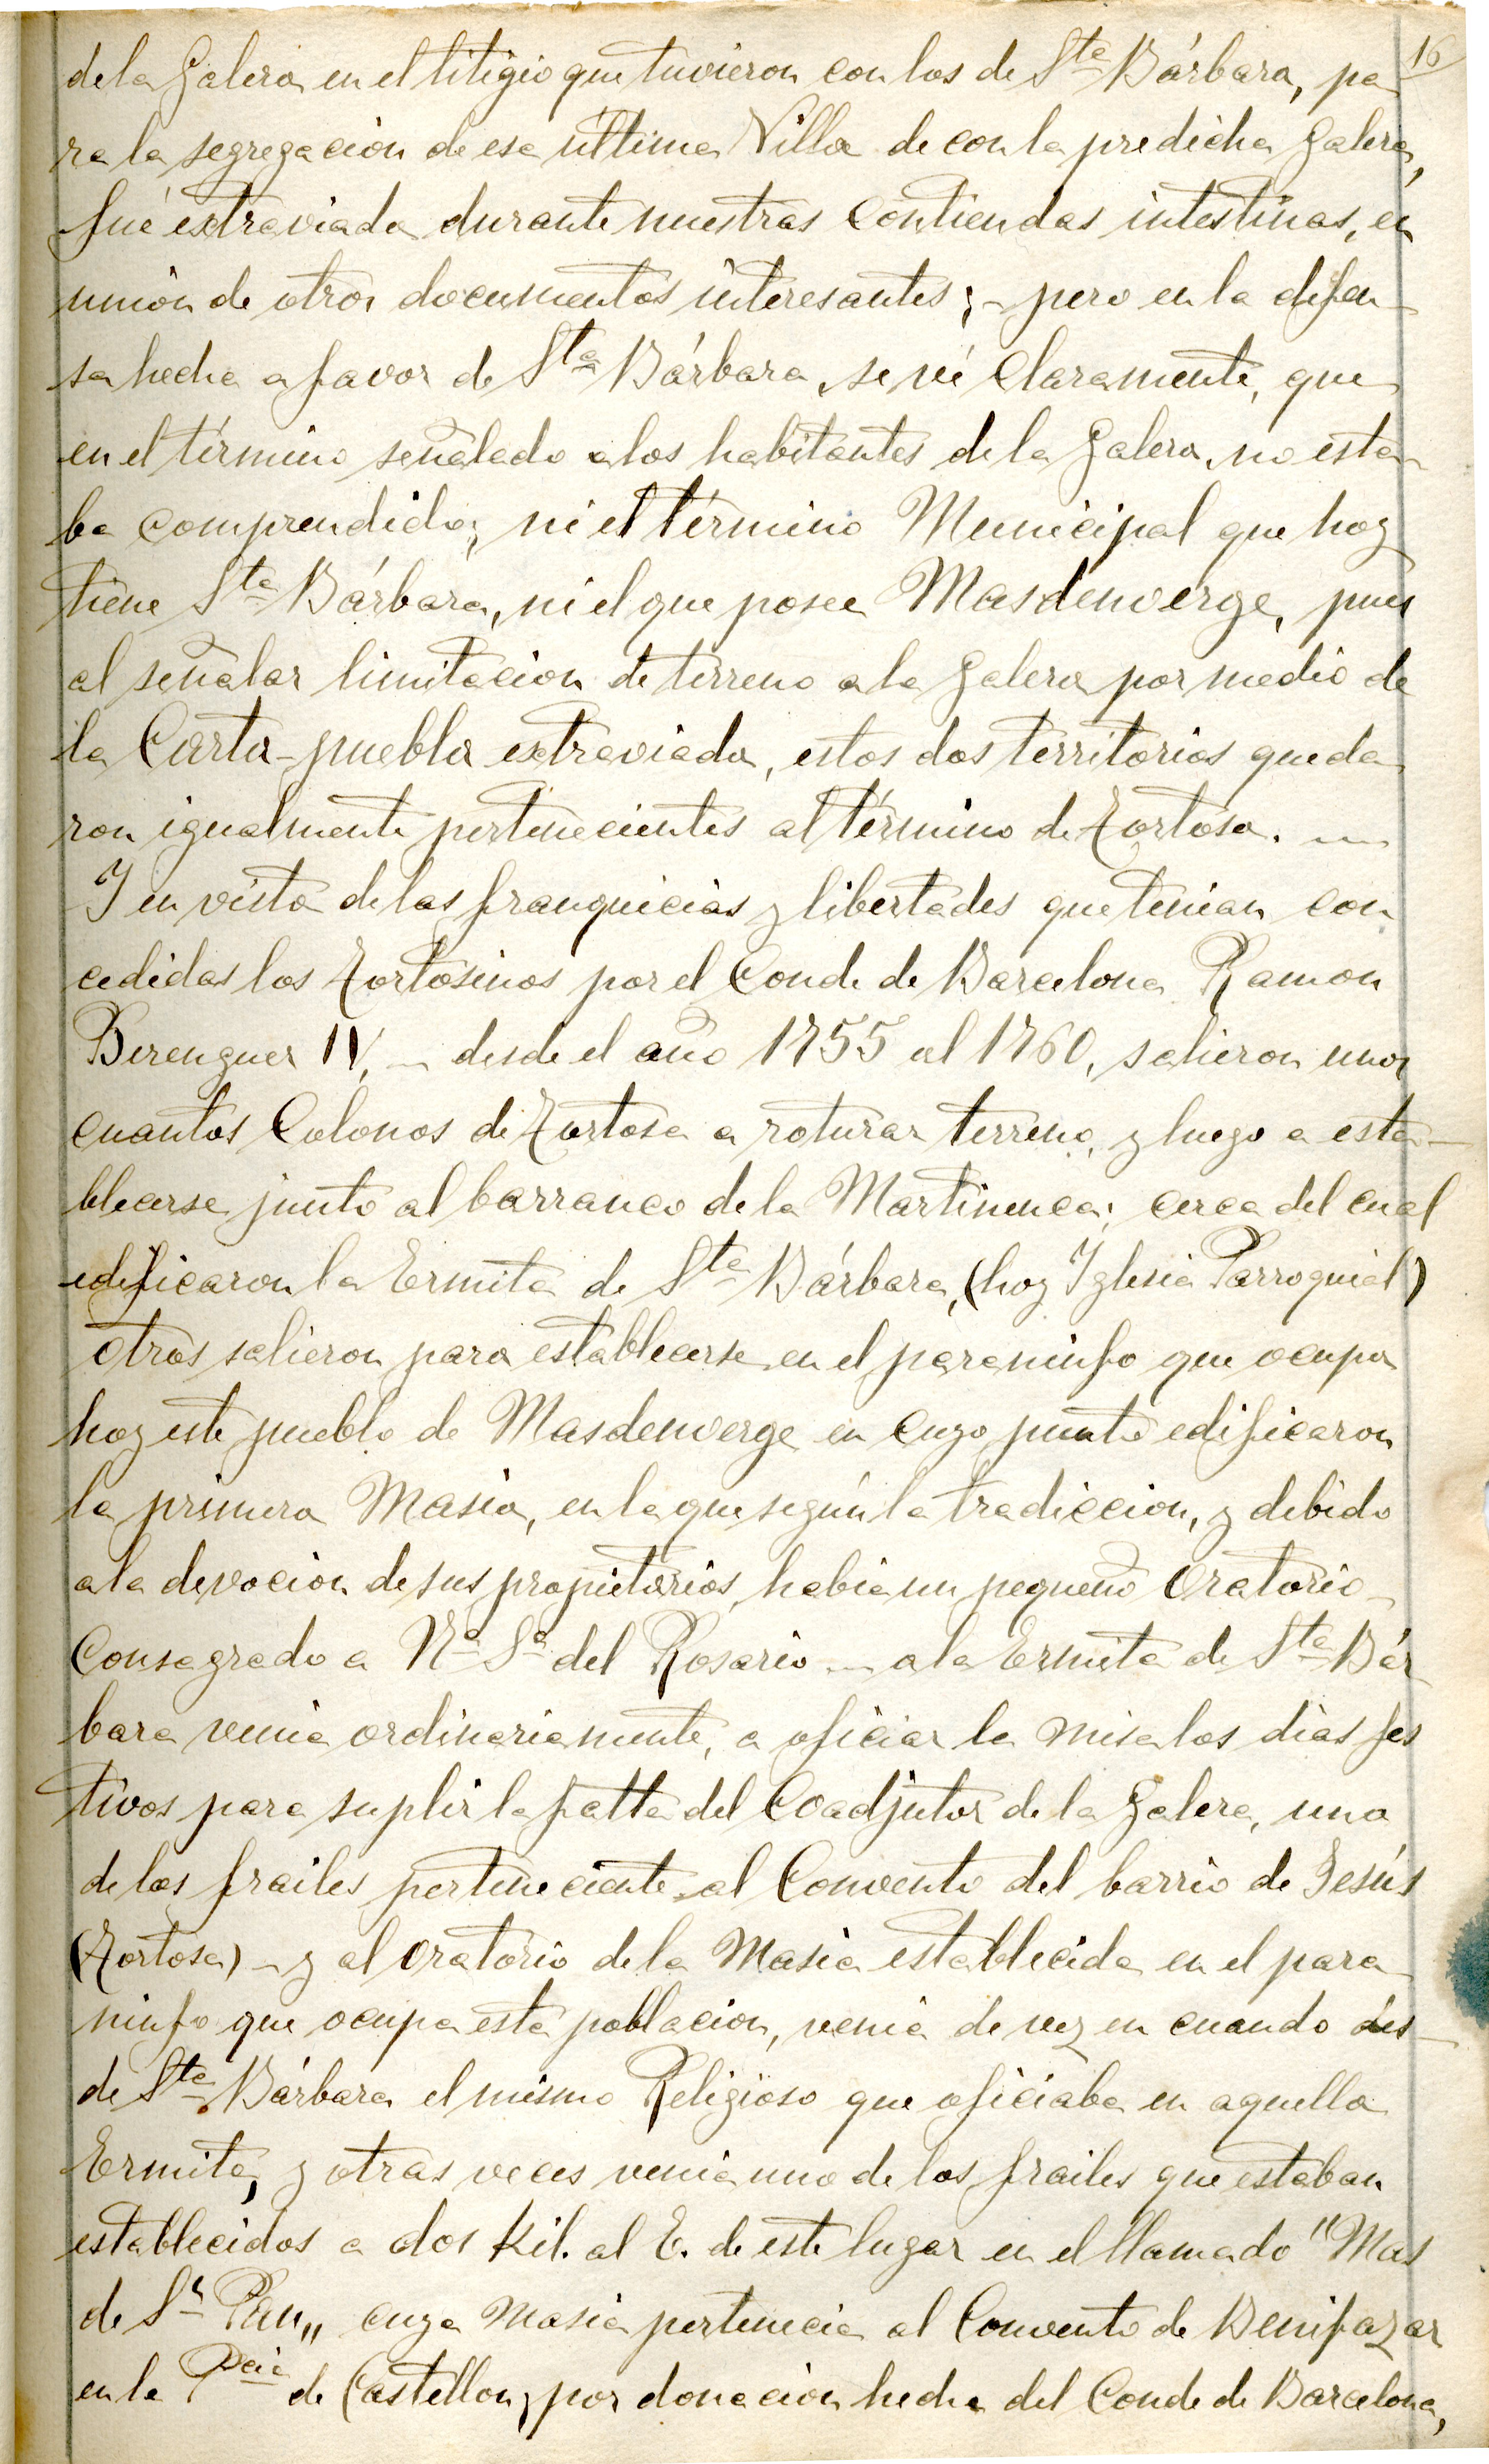 16
de la Galera en el litigio que tuvieron con los de Sta Bárbara, pa
ra la segregación de esa última Villa de con la predicha Galera,
fué extraviada durante nuestras contiendas intestinas, en
unión de otros documentos interesantes; - pero en la defen-
sa hecha a favor de Sta Bárbara, se vé claramente, que
en el término señalado a los habitantes de la Galera, no esta-
ba comprendido, ni el término Municipal que hoy
tiene Sta Bárbara, ni el que posee Masdenverge, pues
al señalar limitación de terreno a la Galera por medio de
la Carta-puebla extraviada, estos dos territorios queda
ron igualmente pertenecientes al término de Tortosa. —
Y en vista de las franquicias y libertades que tenian con
cedidas los Tortosinos por el Conde de Barcelona Ramon
Berenguer IV, — desde el año 1755 al 1760, salieron unos
cuantos Colonos de Tortosa a roturar terreno, y luego a esta-
blecerse junto al barranco de la Martinenca; cerca del cual
edificaron la Ermita de Sta Bárbara, (hoy Iglesia Parroquial)
otros salieron para establecerse en el paraninfo que ocupa
hoy este pueblo de Masdenverge en cuyo punto edificaron
la primera Masia, en la que según la tradiccion, y debido
a la devocion de sus propietarios, habia un pequeño Oratorio
Consagrado a Na Sa del Rosario — a la Ermita de Sta Bár
bara venia ordinariamente, a oficiar la misa los dias fes
tivos para suplir la falta del Coadjutor de la Galera, uno
de los frailes perteneciente al Convento del barrio de Jesús
(Tortosa) - y al oratorio de la Masia establecida en el para
ninfo que ocupa esta poblacion, venia de vez en cuando des-
de Sta Bárbara el mismo Religioso que oficiaba en aquella
Ermita, y otras veces venia uno de los frailes que estaban
establecidos a dos Kil. al E. de este lugar en el llamado "Mas
de Sn Pau,, cuya Masia pertenecia al Convento de Benifazar
en la Pcia de Castellon, por donacion hecha del Conde de Barcelona,